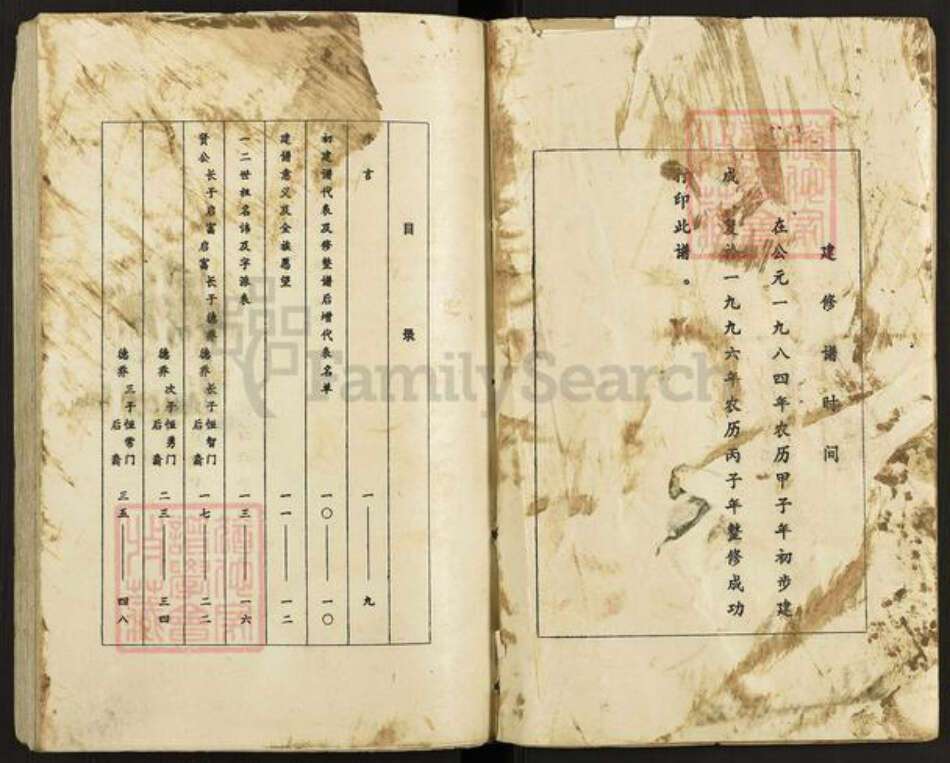 建修谱时间
在公元一九八四年农历甲子年初步建
成 复於一九九六年农历丙子年整修成功
印此谱。
目录
言 一——九
初建谱代表及修整谱后增代表名单 一〇——一〇
建谱意义及全族愿望 一一——一二
一二世祖名讳及字派表 一三——一六
贤公长子启富启富长子德养德养长子恒智门后裔 一七——二二
德养次子恒勇门后裔 二三——三四
德养三子恒常门后裔 三五——四八
FamilySearch